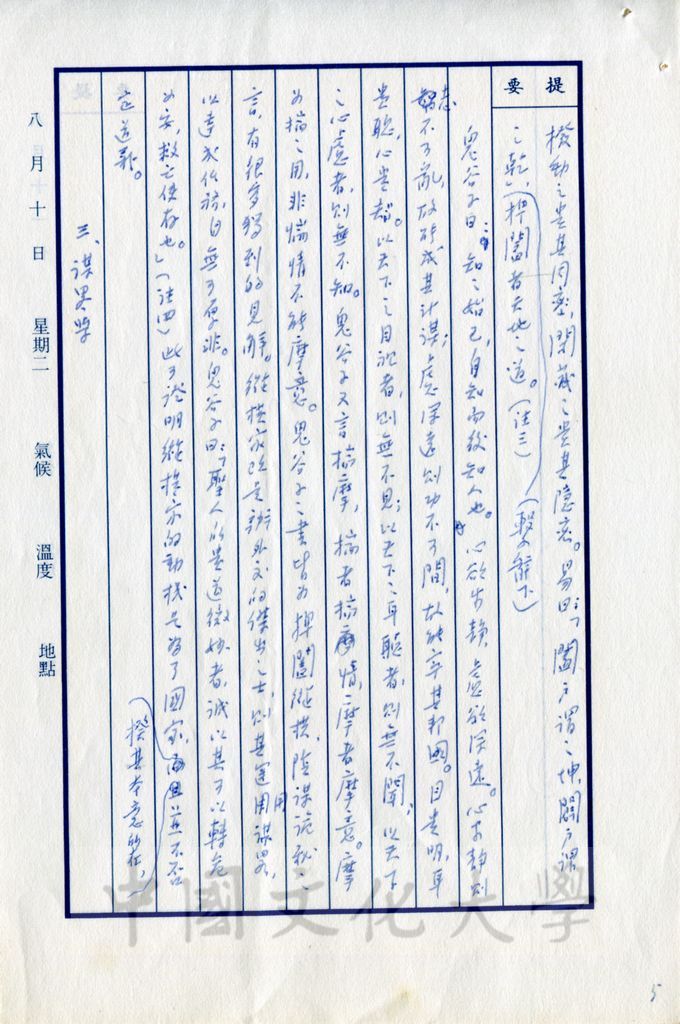 提要
捭動之貴其周密,閉藏之貴其隱密。易曰:「闔戶謂之坤,闢戶謂
之乾,」捭闔者天地之道。(註三)(繫辭下)
鬼谷子曰:「知之始己,自知而後知人也。」心欲安靜,慮欲深遠。心安靜則
志不可亂,故能成其計謀;慮深遠則功不可間,故能牢其邦國。目貴明,耳
貴聰,心貴智。以天下之目視者,則無不見;以天下之耳聽者,則無不聞;以天下
之心慮者,則無不知。鬼谷子又言揣摩,揣者揣情,摩者摩意。摩
為揣之用,非揣情不能摩意。鬼谷子之書皆為捭闔縱橫、陰謀詭秘之
言,有很多獨到的見解。縱橫家既是辦外交的傑出之士,則其運用謀略,
以達成任務,自無可厚非。鬼谷子曰:「聖人所貴道微妙者,誠以其可以轉危
為安,救亡使存也。」(註四)此可證明縱橫家的動機是為了國家,揆其本意所在,並不否
定道義。
三、謀略學
八月十日 星期二 氣候 溫度 地點
中國文化大學
5